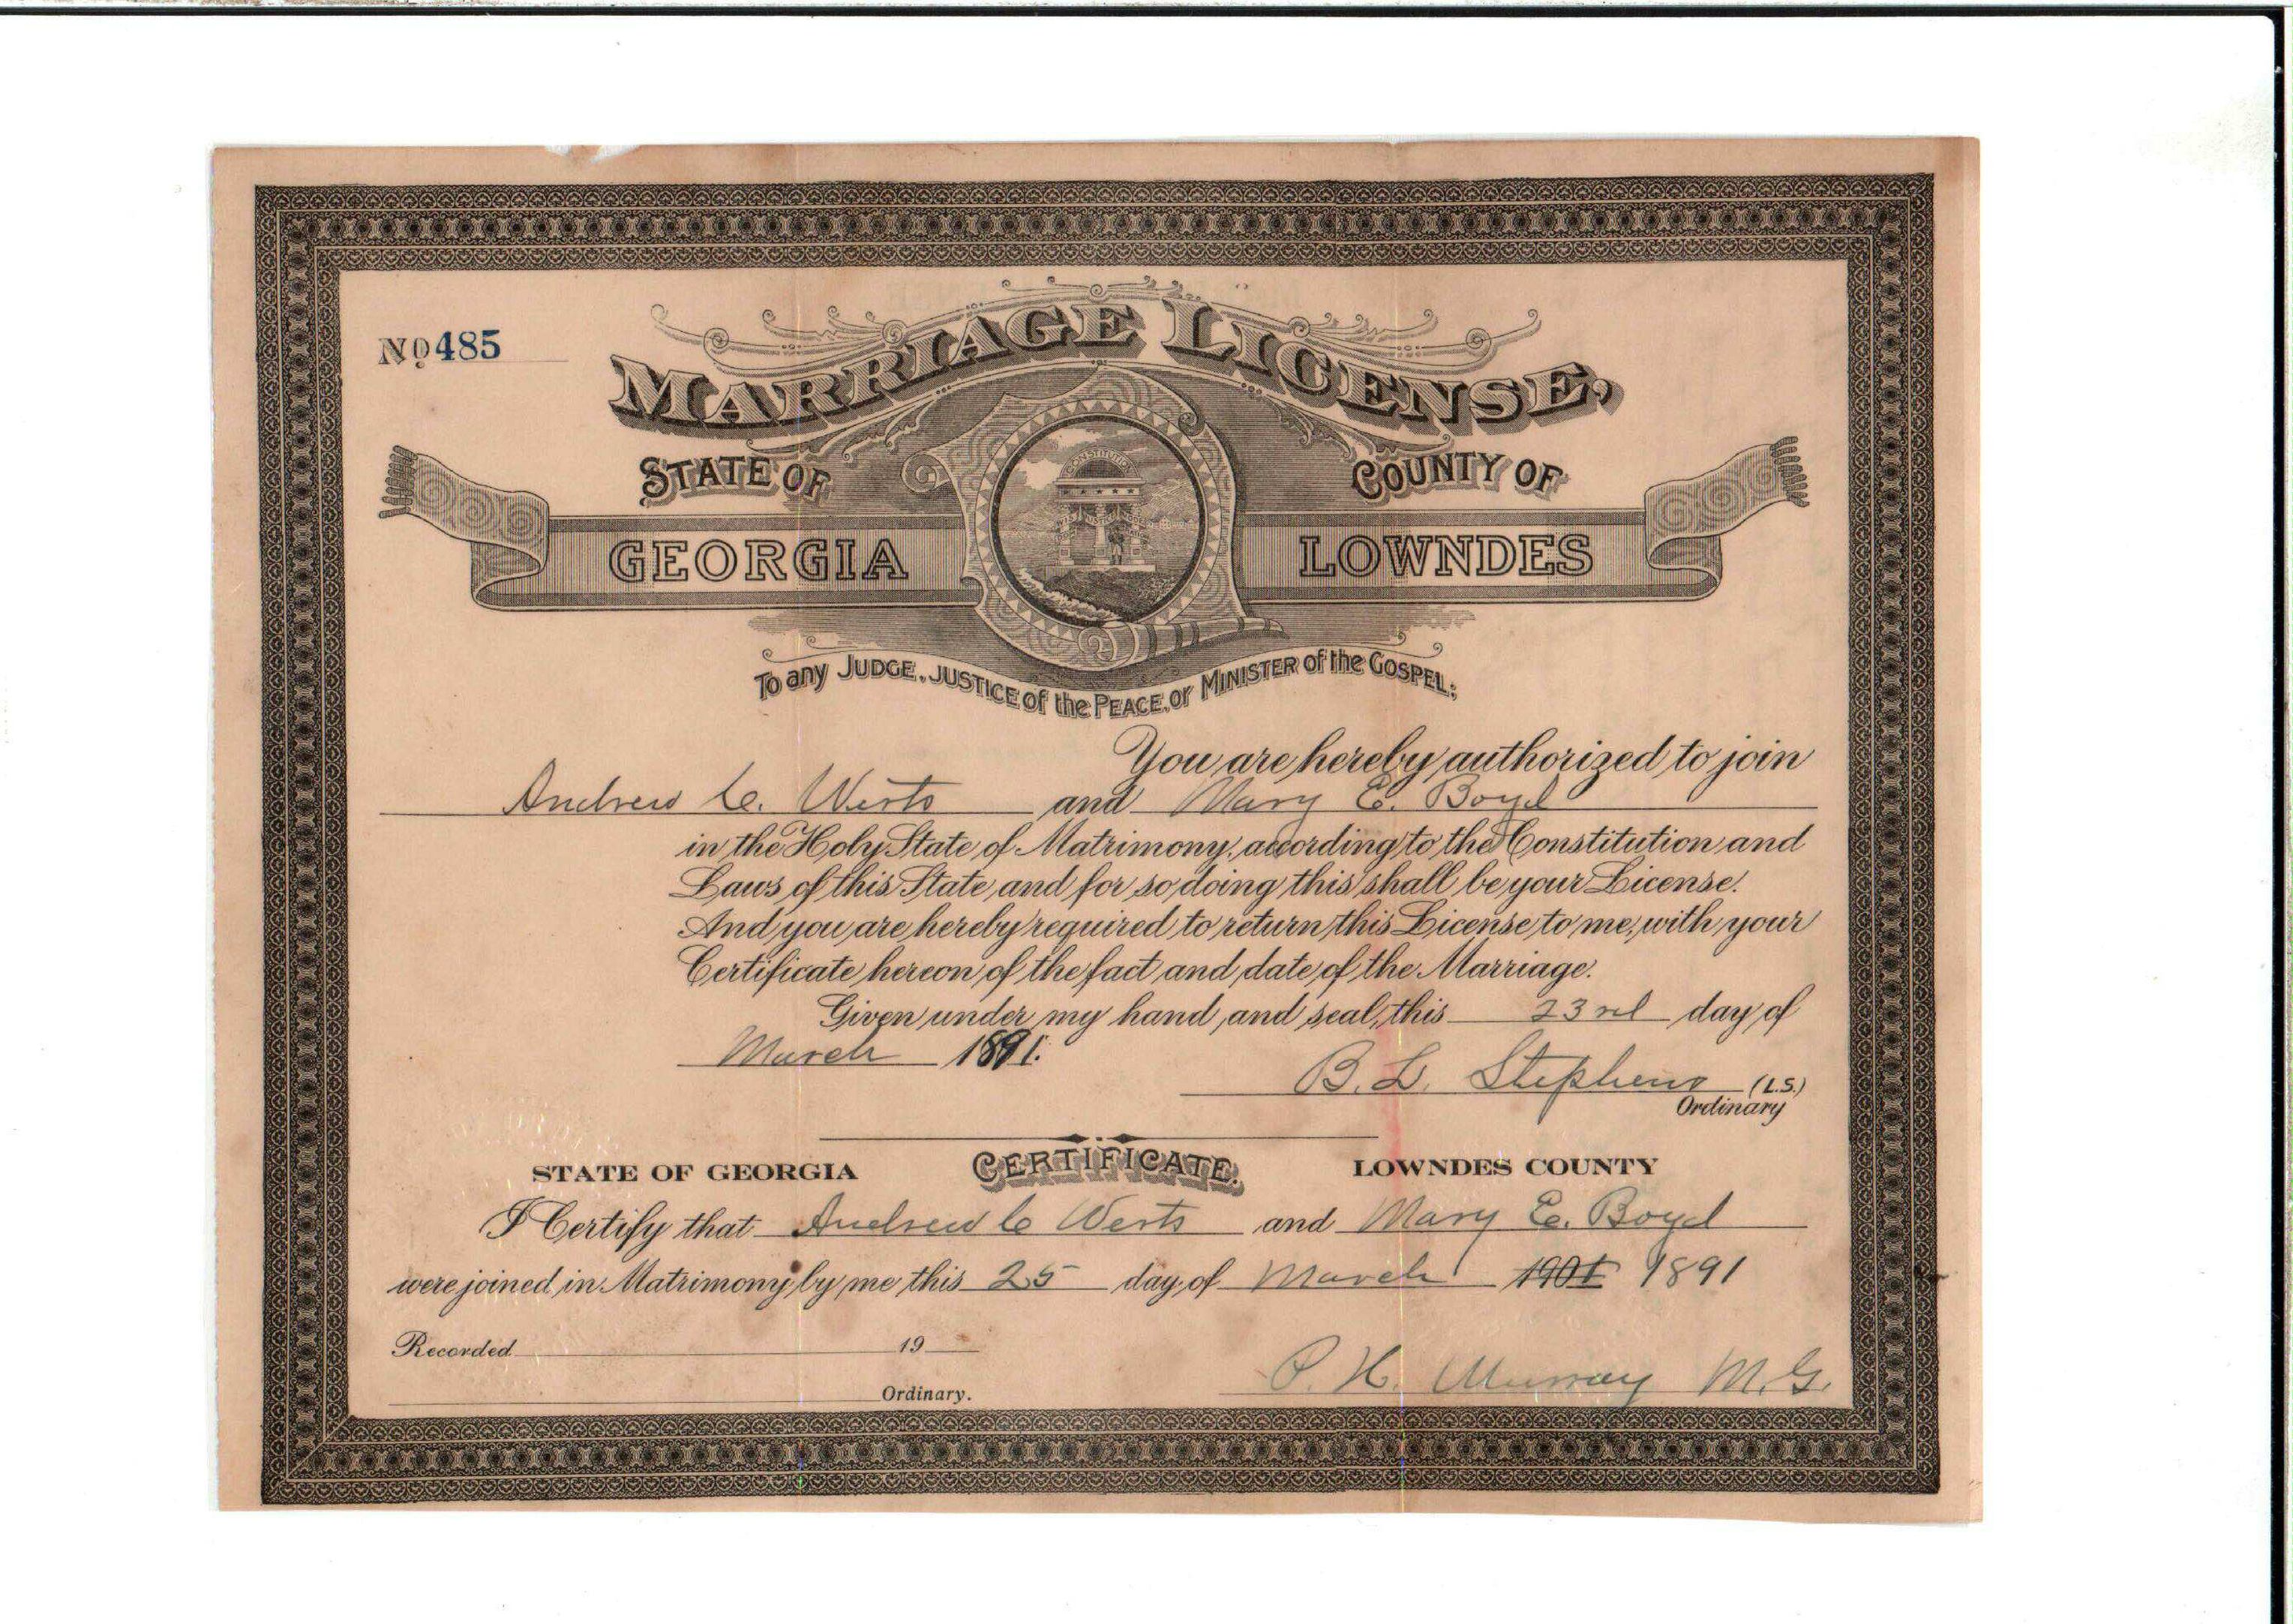 No 485
MARRIAGE LICENSE,
STATE OF
COUNTY OF
CONSTITUTION
GEORGIA
LOWNDES
To any JUDGE, JUSTICE of the PEACE, or MINISTER of the GOSPEL:
You are hereby authorized to join
Andrew C. Werts and Mary E. Boyd
in the Holy State of Matrimony, according to the Constitution and
Laws of this State and for so doing this shall be your License.
And you are hereby required to return this License to me, with your
Certificate hereon of the fact and date of the Marriage.
Given under my hand and seal, this 23rd day of
March 1891.
B. L. Stephens (L.S.)
Ordinary
CERTIFICATE.
STATE OF GEORGIA
LOWNDES COUNTY
I Certify that Andrew C Werts and Mary E. Boyd
were joined in Matrimony by me this 25 day of March 1901 1891
Recorded 19
P. H. Murray M.G.
Ordinary.